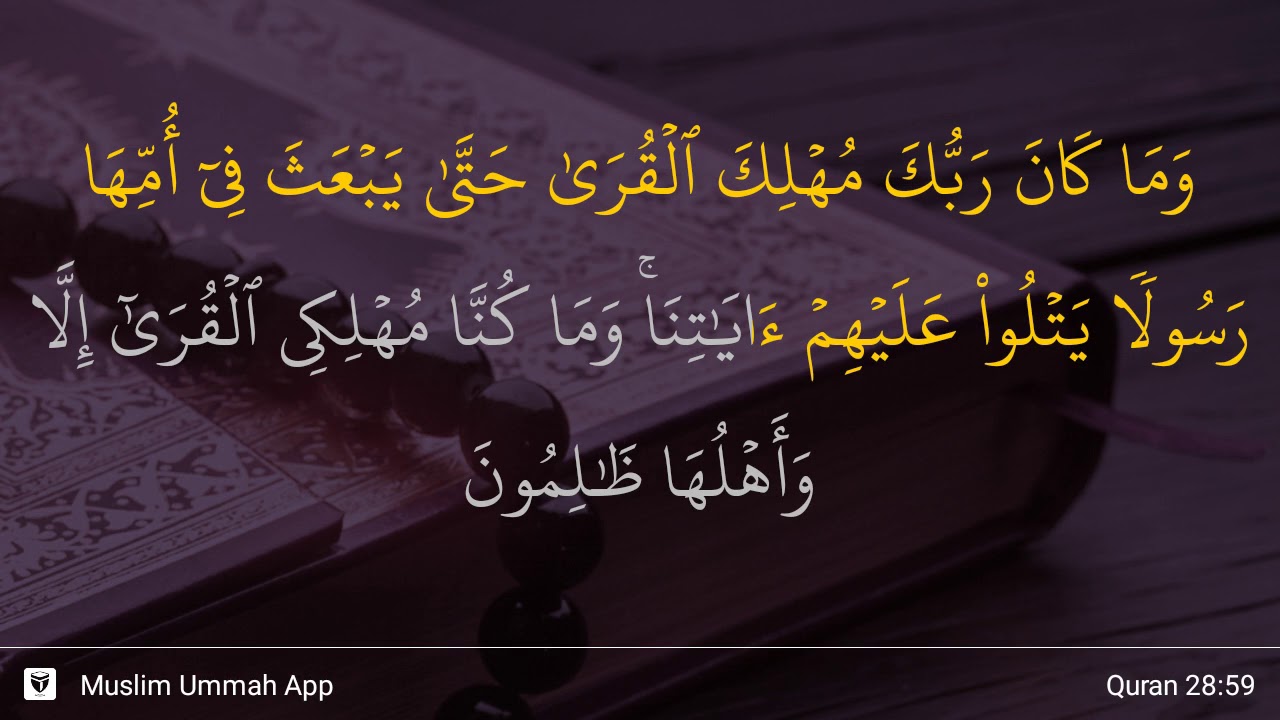 وَمَا كَانَ رَبُّكَ مُهۡلِكَ ٱلۡقُرَىٰ حَتَّىٰ يَبۡعَثَ فِيٓ أُمِّهَا
رَسُولَا يَتۡلُواْ عَلَيۡهِمۡ ءَايَٰتِنَاۚ وَمَا كُنَّا مُهۡلِكِي ٱلۡقُرَىٰٓ إِلَّا
وَأَهۡلُهَا ظَٰلِمُونَ
Muslim Ummah App
Quran 28:59